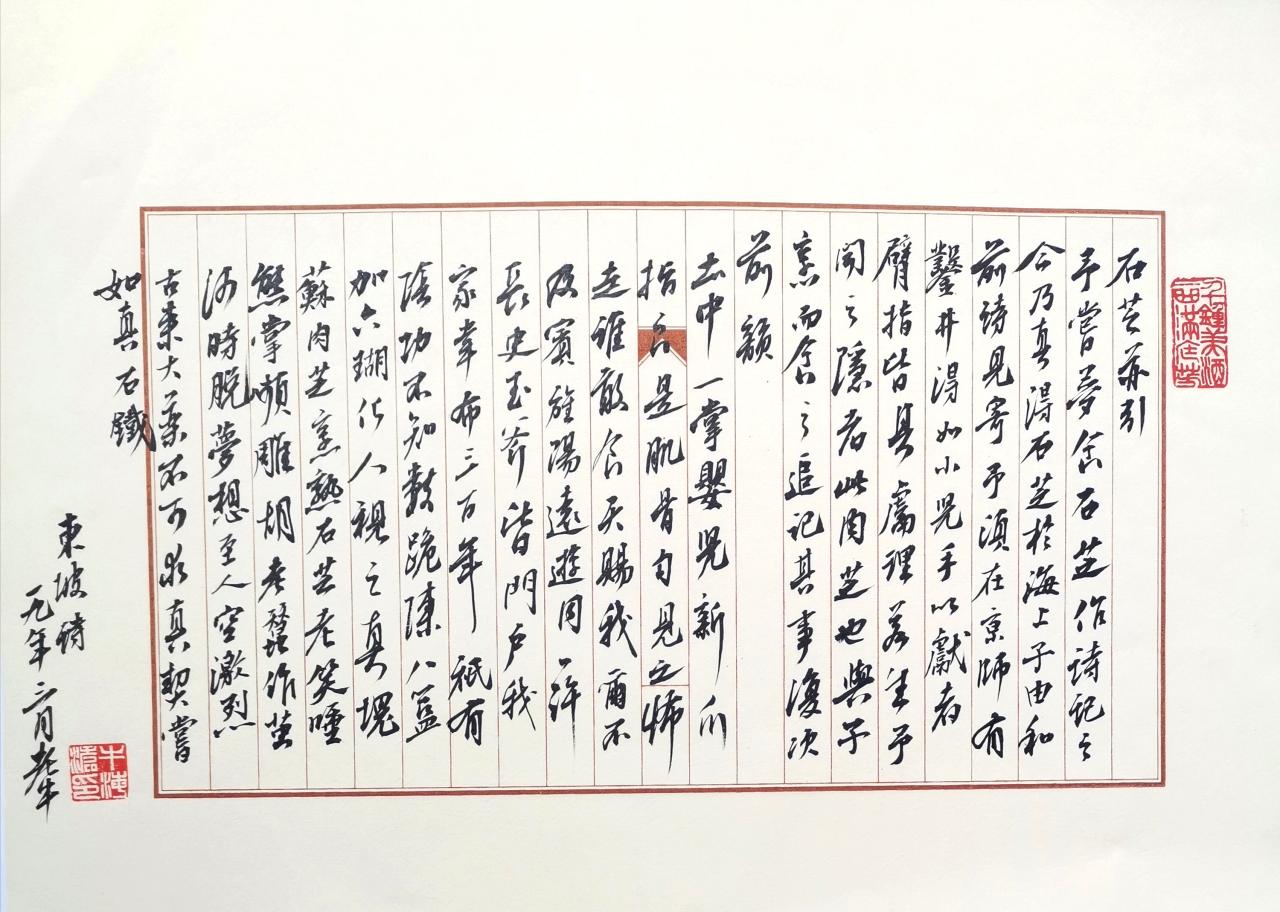 石芝并引
予嘗夢食石芝作詩記之
今乃真得石芝於海上子由和
前詩見寄予頃在京師有
鑿井得如小兒手以獻者
臂指皆具膚理若生予
聞之隱者此肉芝也與子
烹而食之追記其事復次
前韻
土中一掌嬰兒新爪
指良是肌骨勻見之怖
走誰敢食天賜我爾不
及賓旌陽遠遊同一許
長史玉斧皆門戶我
家韋布三百年祇有
陰功不知數跪陳八簋
加六瑚化人視之真塊
蘇肉芝烹熟石芝老笑唾
熊掌嚬雕胡老蠶作繭
何時脫夢想至人空激烈
古來大藥不可求真契當
如真石鐵
東坡詩
九年三月